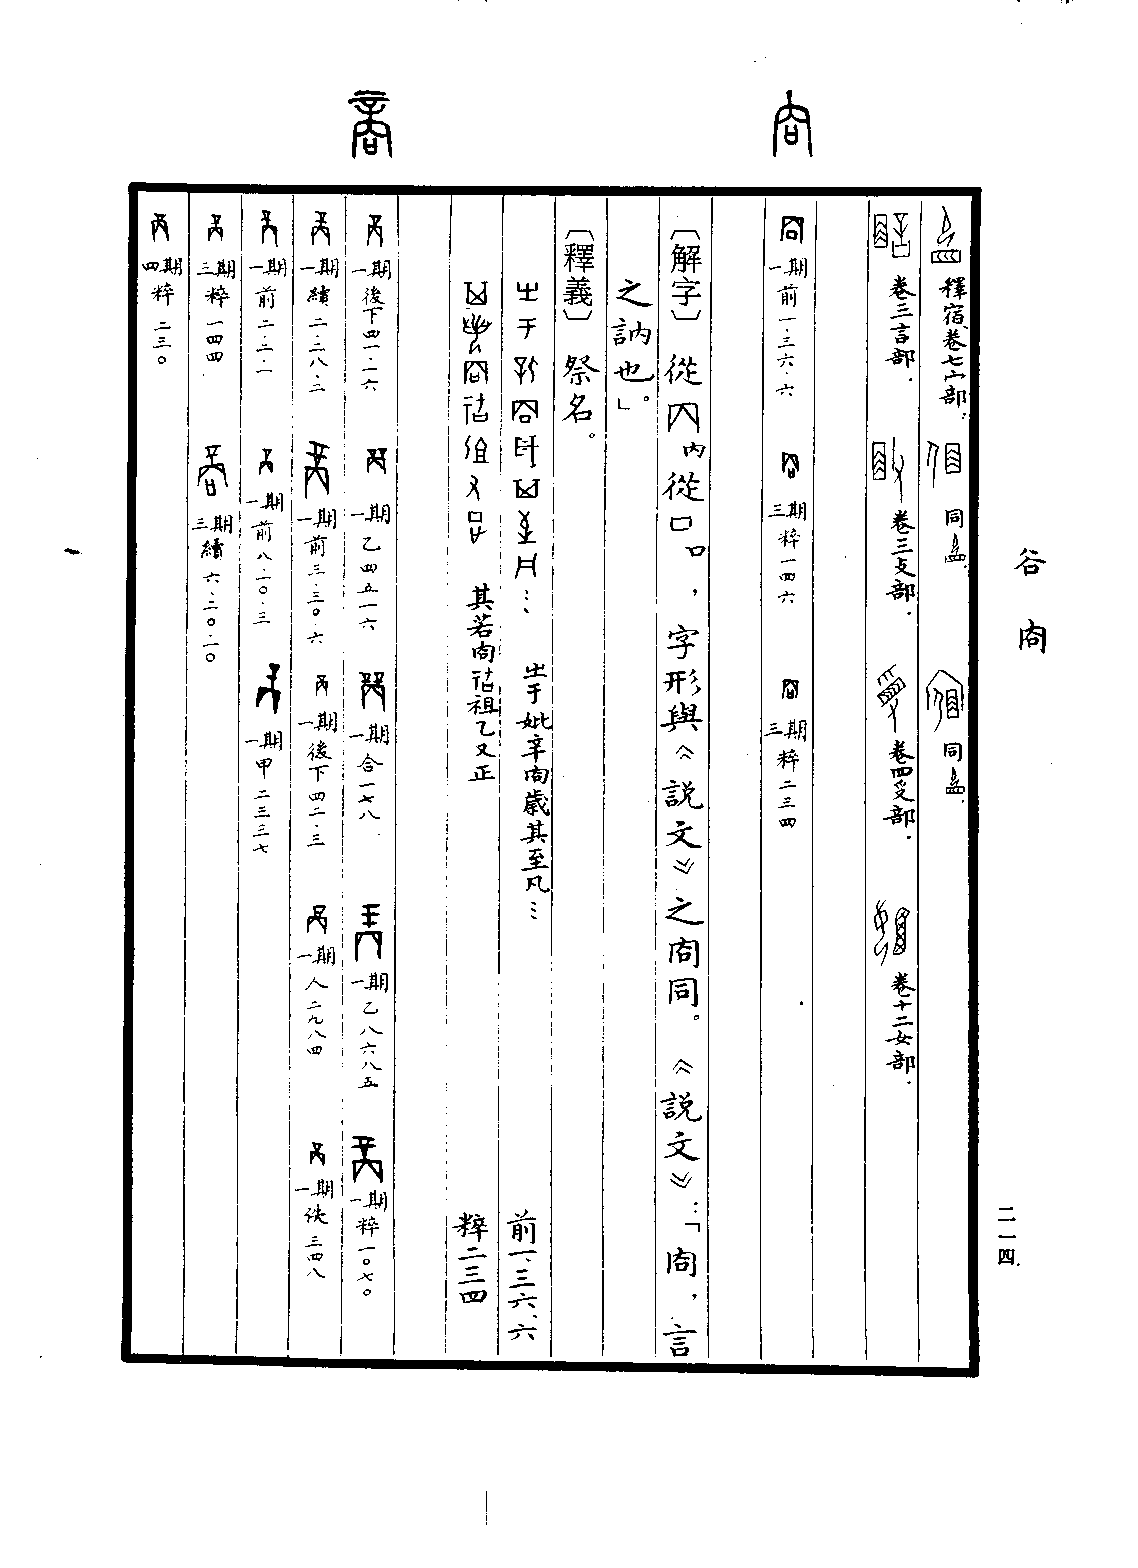 谷 㕯
二一四
釋宿，卷七宀部． 同 同
卷三言部． 卷三攴部． 卷四𠬪部． 卷十二女部．
一期前一·三六·六 三期粹一四六 三期粹二三四
〔解字〕從內從口口，字形與《說文》之㕯同。《說文》：「㕯，言
之訥也。」
〔釋義〕祭名。
㞢于妣辛㕯歲其至凡… 前一、三六、六
其若㕯祜祖乙又正 粹二三四
商
一期後下四一·一六 一期乙四五一六 一期合一七八 一期乙八六八五 一期粹一〇七〇
一期續二·二八·二 一期前三·三〇·六 一期後下四二·三 一期人二九八四 一期佚三四八
一期前二·二·一 一期前八·一〇·三 一期甲二三三七
三期粹一四四 三期續六·二〇·一〇
四期粹二三〇